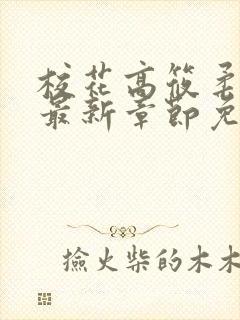 校花高筱柔
最新章節免
撿火柴的木木